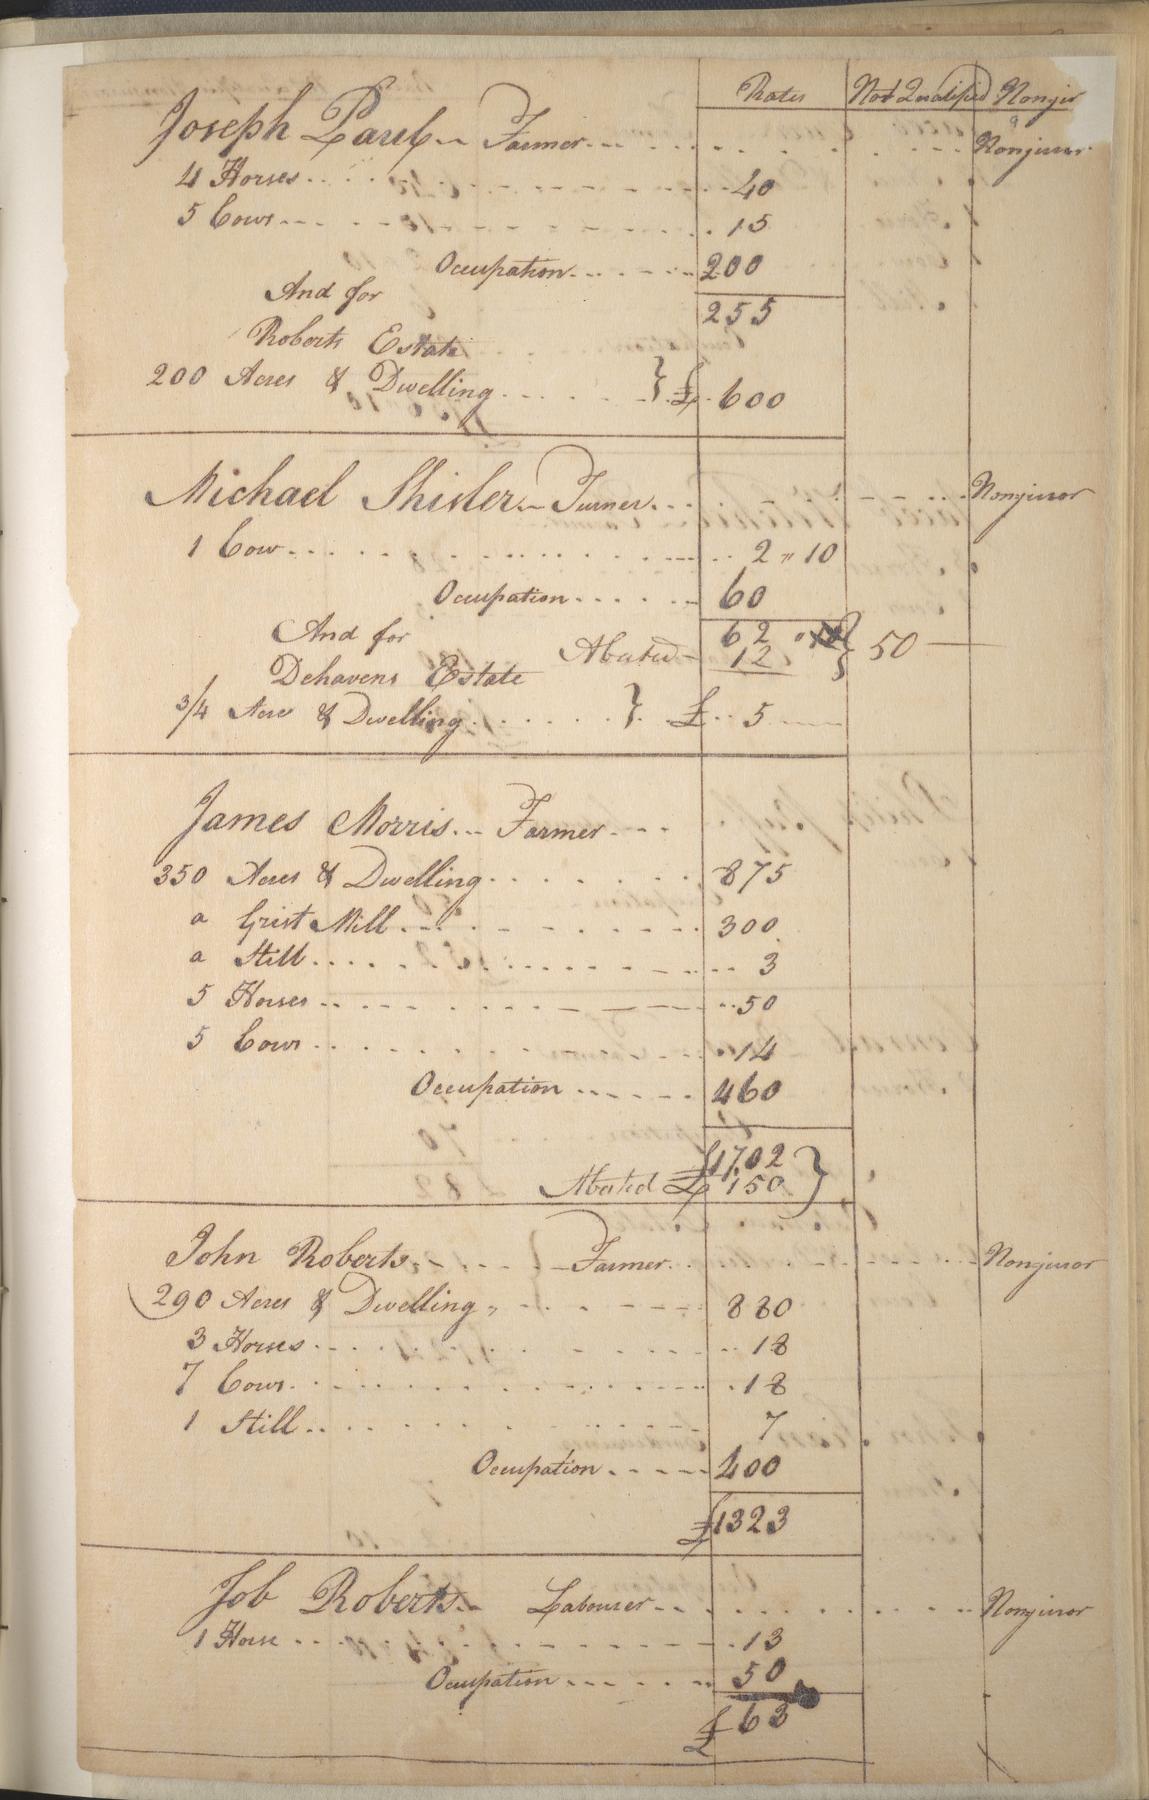 Rates Not Qualified Nonjur
Joseph Paul Farmer Nonjuror
4 Horses 40
5 Cows 15
Occupation 200
And for 255
Roberts Estate
200 Acres & Dwelling } £ 600
Michael Shisler Turner Nonjuror
1 Cow 2 " 10
Occupation 60
And for 62
Abated 12 } 50
Dehavens Estate
3/4 Acre & Dwelling } £ 5
James Morris Farmer
350 Acres & Dwelling 875
a Grist Mill 300
a Still 3
5 Horses 50
5 Cows 14
Occupation 460
£1702
Abated £ 150 }
John Roberts Farmer Nonjuror
290 Acres & Dwelling 880
3 Horses 18
7 Cows 18
1 Still 7
Occupation 400
£1323
Job Roberts Labourer Nonjuror
1 Horse 13
Occupation 50
£63